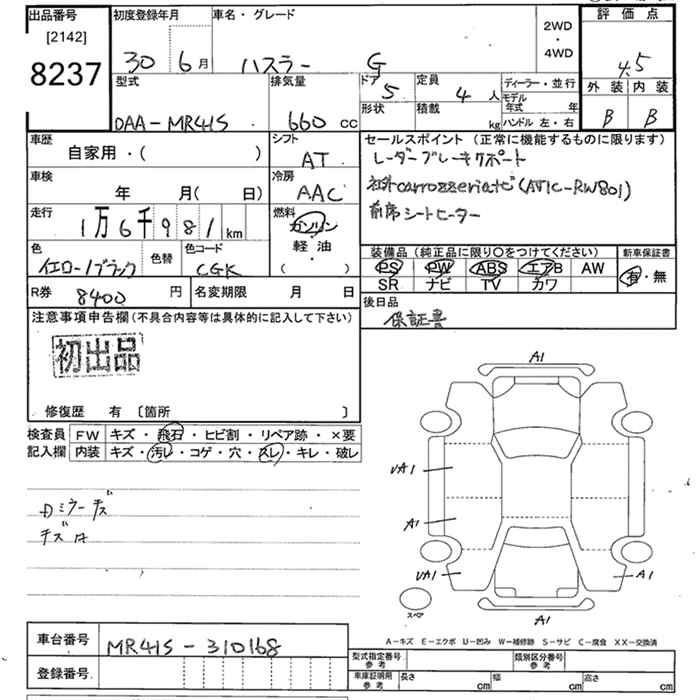 出品番号
[2142]
8237
初度登録年月
30 6月
車名・グレード
ハスラー G
2WD
・
4WD
評価点
4.5
外装 内装
B B
型式
DAA-MR41S
排気量
660 CC
ドア
5
定員
4 人
形状
積載
kg
ディーラー・並行
モデル年式 年
ハンドル 左・右
車歴
自家用・( )
シフト
AT
車検
年 月( 日)
冷房
AAC
走行
1万6千981 km
燃料
ガソリン
・
軽油
・
( )
色
イエロー/ブラック
色替
色コード
CGK
R券
8400 円
名変期限 月 日
セールスポイント(正常に機能するものに限ります)
レーダーブレーキサポート
社外carrozzeriaナビ(AVIC-RW801)
前席シートヒーター
装備品(純正品に限り○をつけてください)
PS PW ABS エアB AW
SR ナビ TV カワ
新車保証書
有・無
後日品
保証書
注意事項申告欄(不具合内容等は具体的に記入して下さい)
初出品
修復歴 有 〔箇所 〕
検査員記入欄
FW キズ・飛石・ヒビ割・リペア跡・×要
内装 キズ・汚レ・コゲ・穴・スレ・キレ・破レ
Dミラーキズ
キズ
A1
UA1
A1
UA1
A1
A1
スペア
A-キズ E-エクボ U-凹み W-補修跡 S-サビ C-腐食 XX-交換済
車台番号
MR41S-310168
登録番号
型式指定番号
参考
類別区分番号
参考
車庫証明用
参考
長さ cm
幅 cm
高さ cm